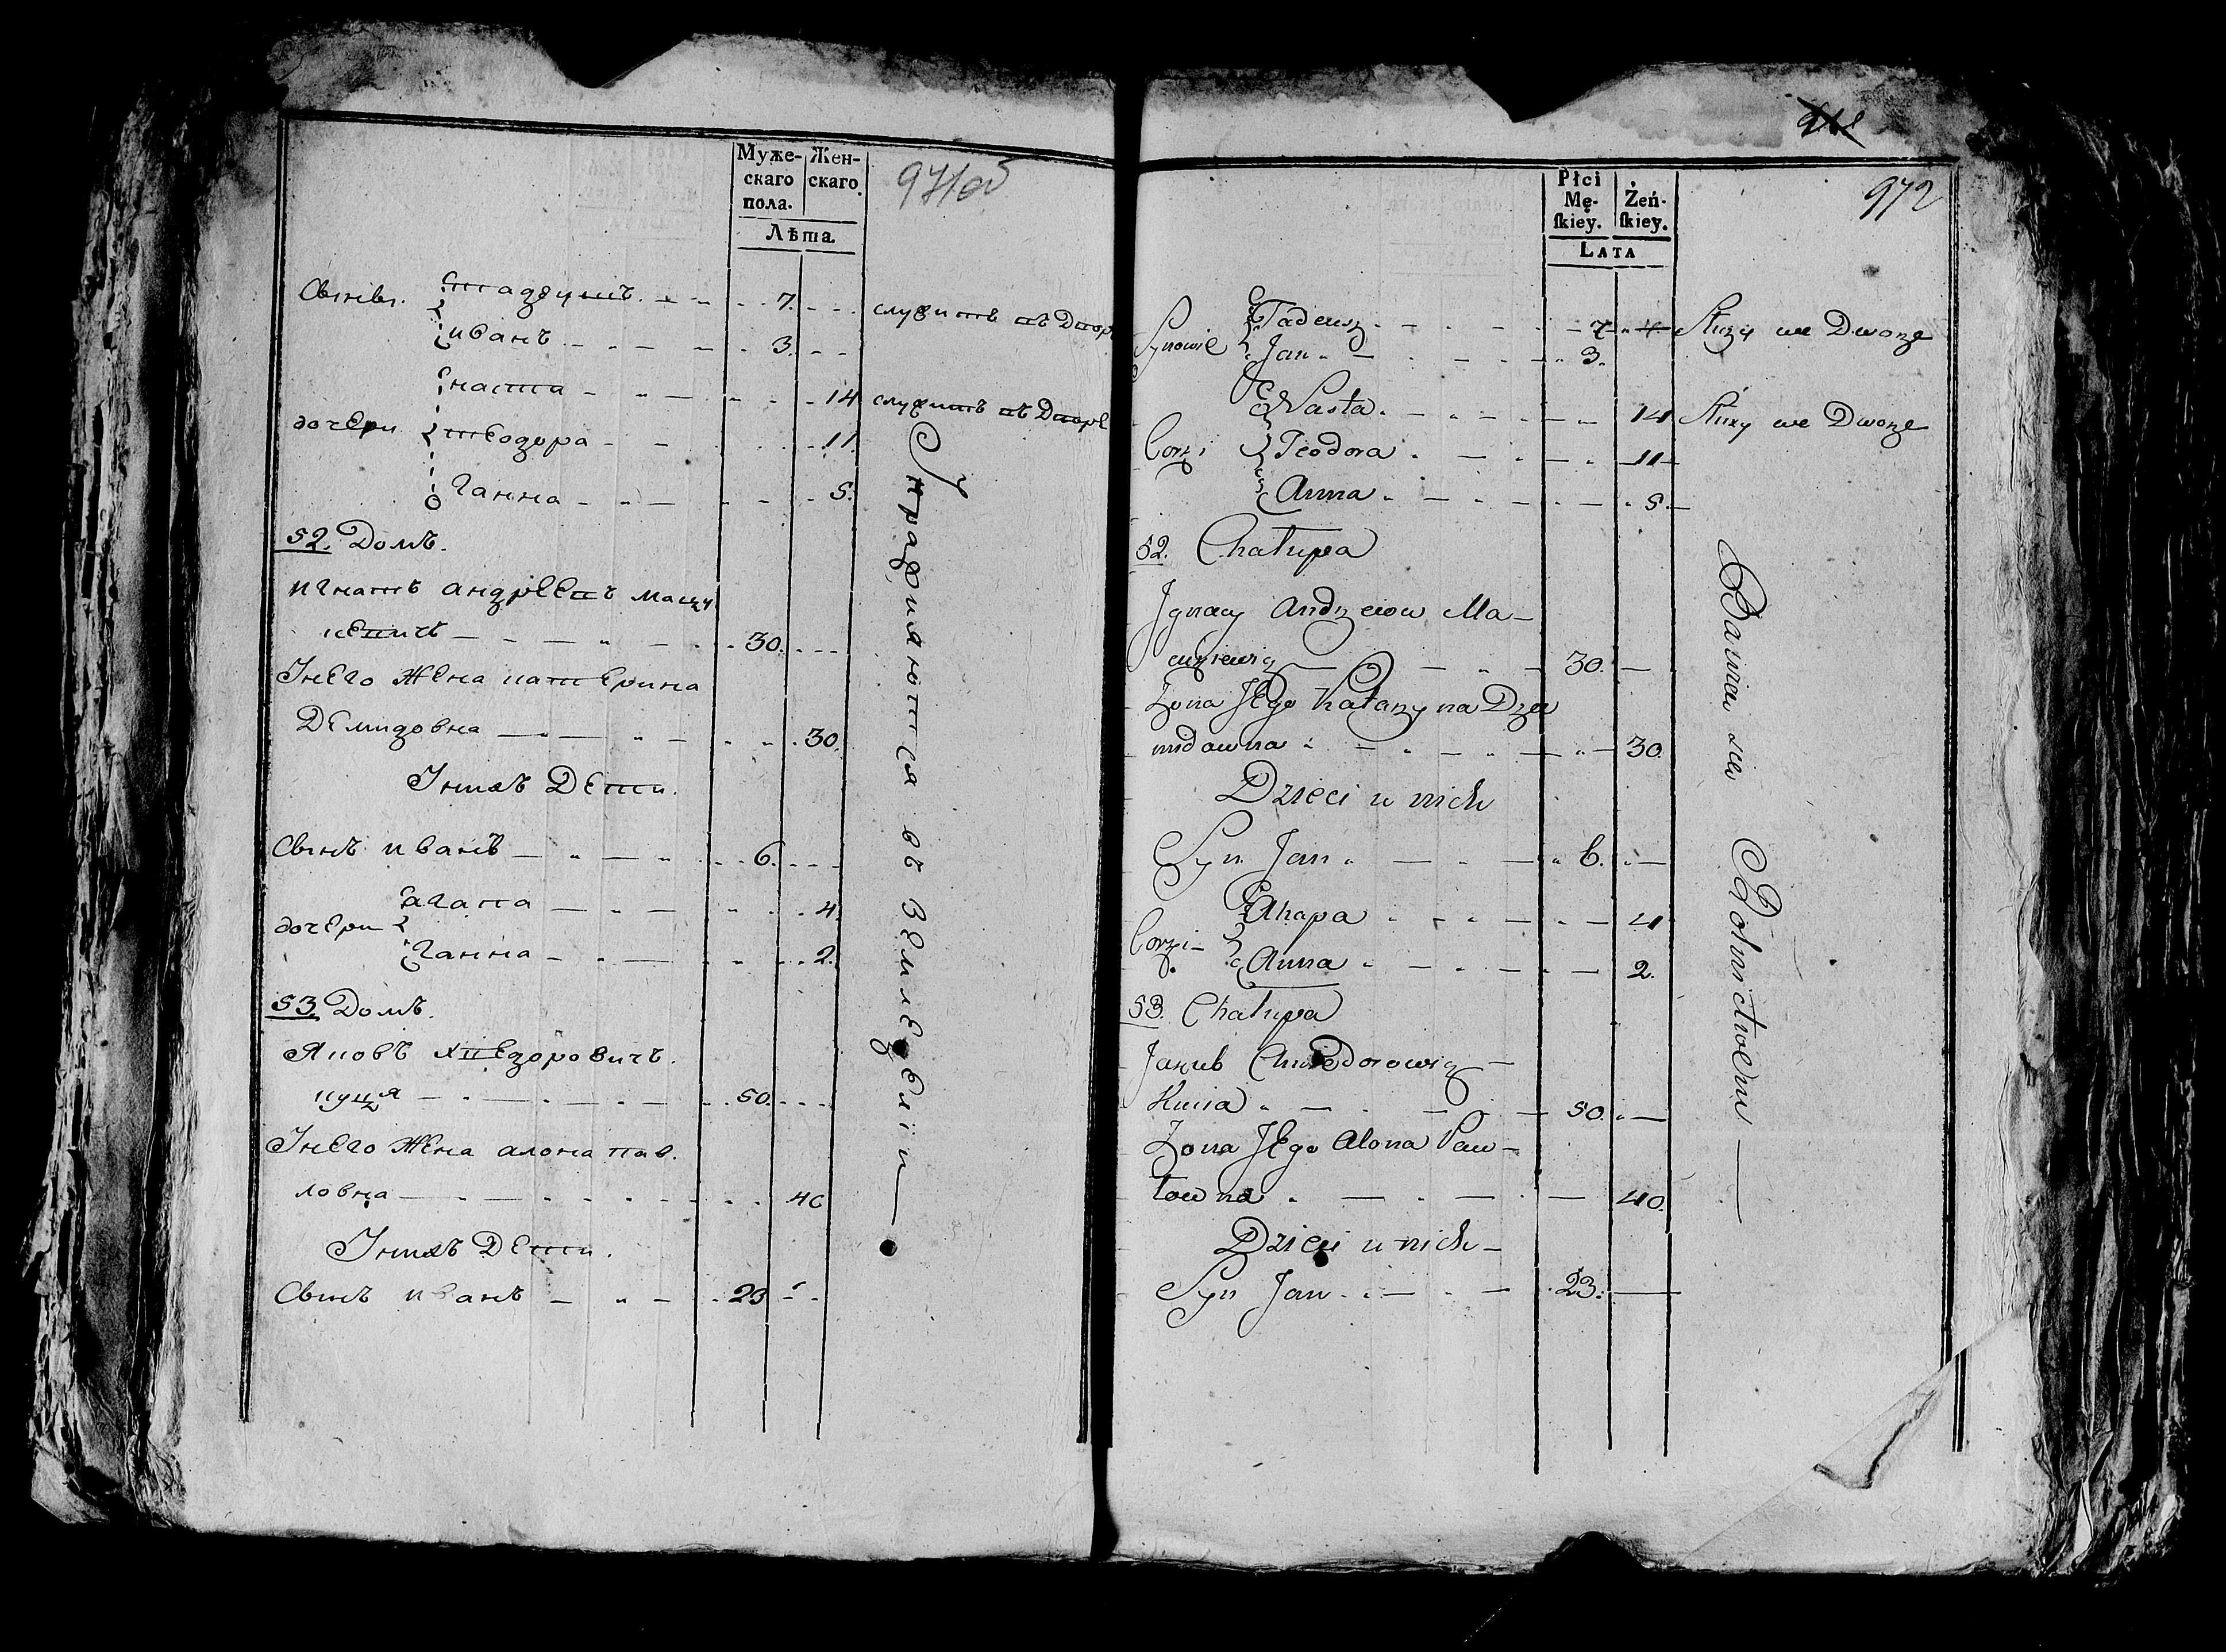 Муже-
скаго
пола.
Жен-
скаго.
Лѣта
971об
Сынвы.
Тадеушъ. 7.
служитъ въ Дворѣ
Иванъ 3.
Наста 14
служитъ въ Дворе
дочери
теодора 11.
Ганна 5.
52. Домъ.
Игнатъ андрѣевъ мацу
кевичъ 30.
Унего Жена катерина
Демидовна 30.
Унихъ Дети.
Сынъ иванъ 6.
дочери
агапа 4
Ганна 2.
53. Домъ.
Яковъ хведоровичъ.
куця 50.
Унего Жена алона пав.
ловна 40
Унихъ Дети.
Сынъ иванъ 23
Упражняются въ Земледѣліи
972
Płci
Mę-
ſkiey.
Żeń-
ſkiey.
LATA
Synowie
Tadeusz 7
Słuzy we Dworze
Jan 3.
Nasta 14
Słuzy we Dworze
Corki
Teodora 11
Anna 5.
52. Chałupa
Jgnacy Andrzeiow Ma-
cukiewicz 30.
Zona Jego Katarzyna Dze
midowna 30.
Dzieci u nich
Syn Jan 6.
Corki
Ahapa 4
Anna 2.
53. Chałupa
Jakub Chwiedorowicz
Kucia 50.
Zona Jego Alona Paw-
łowna 40.
Dzieci u nich
Syn Jan 23.
Bawia sie Rolnictwem